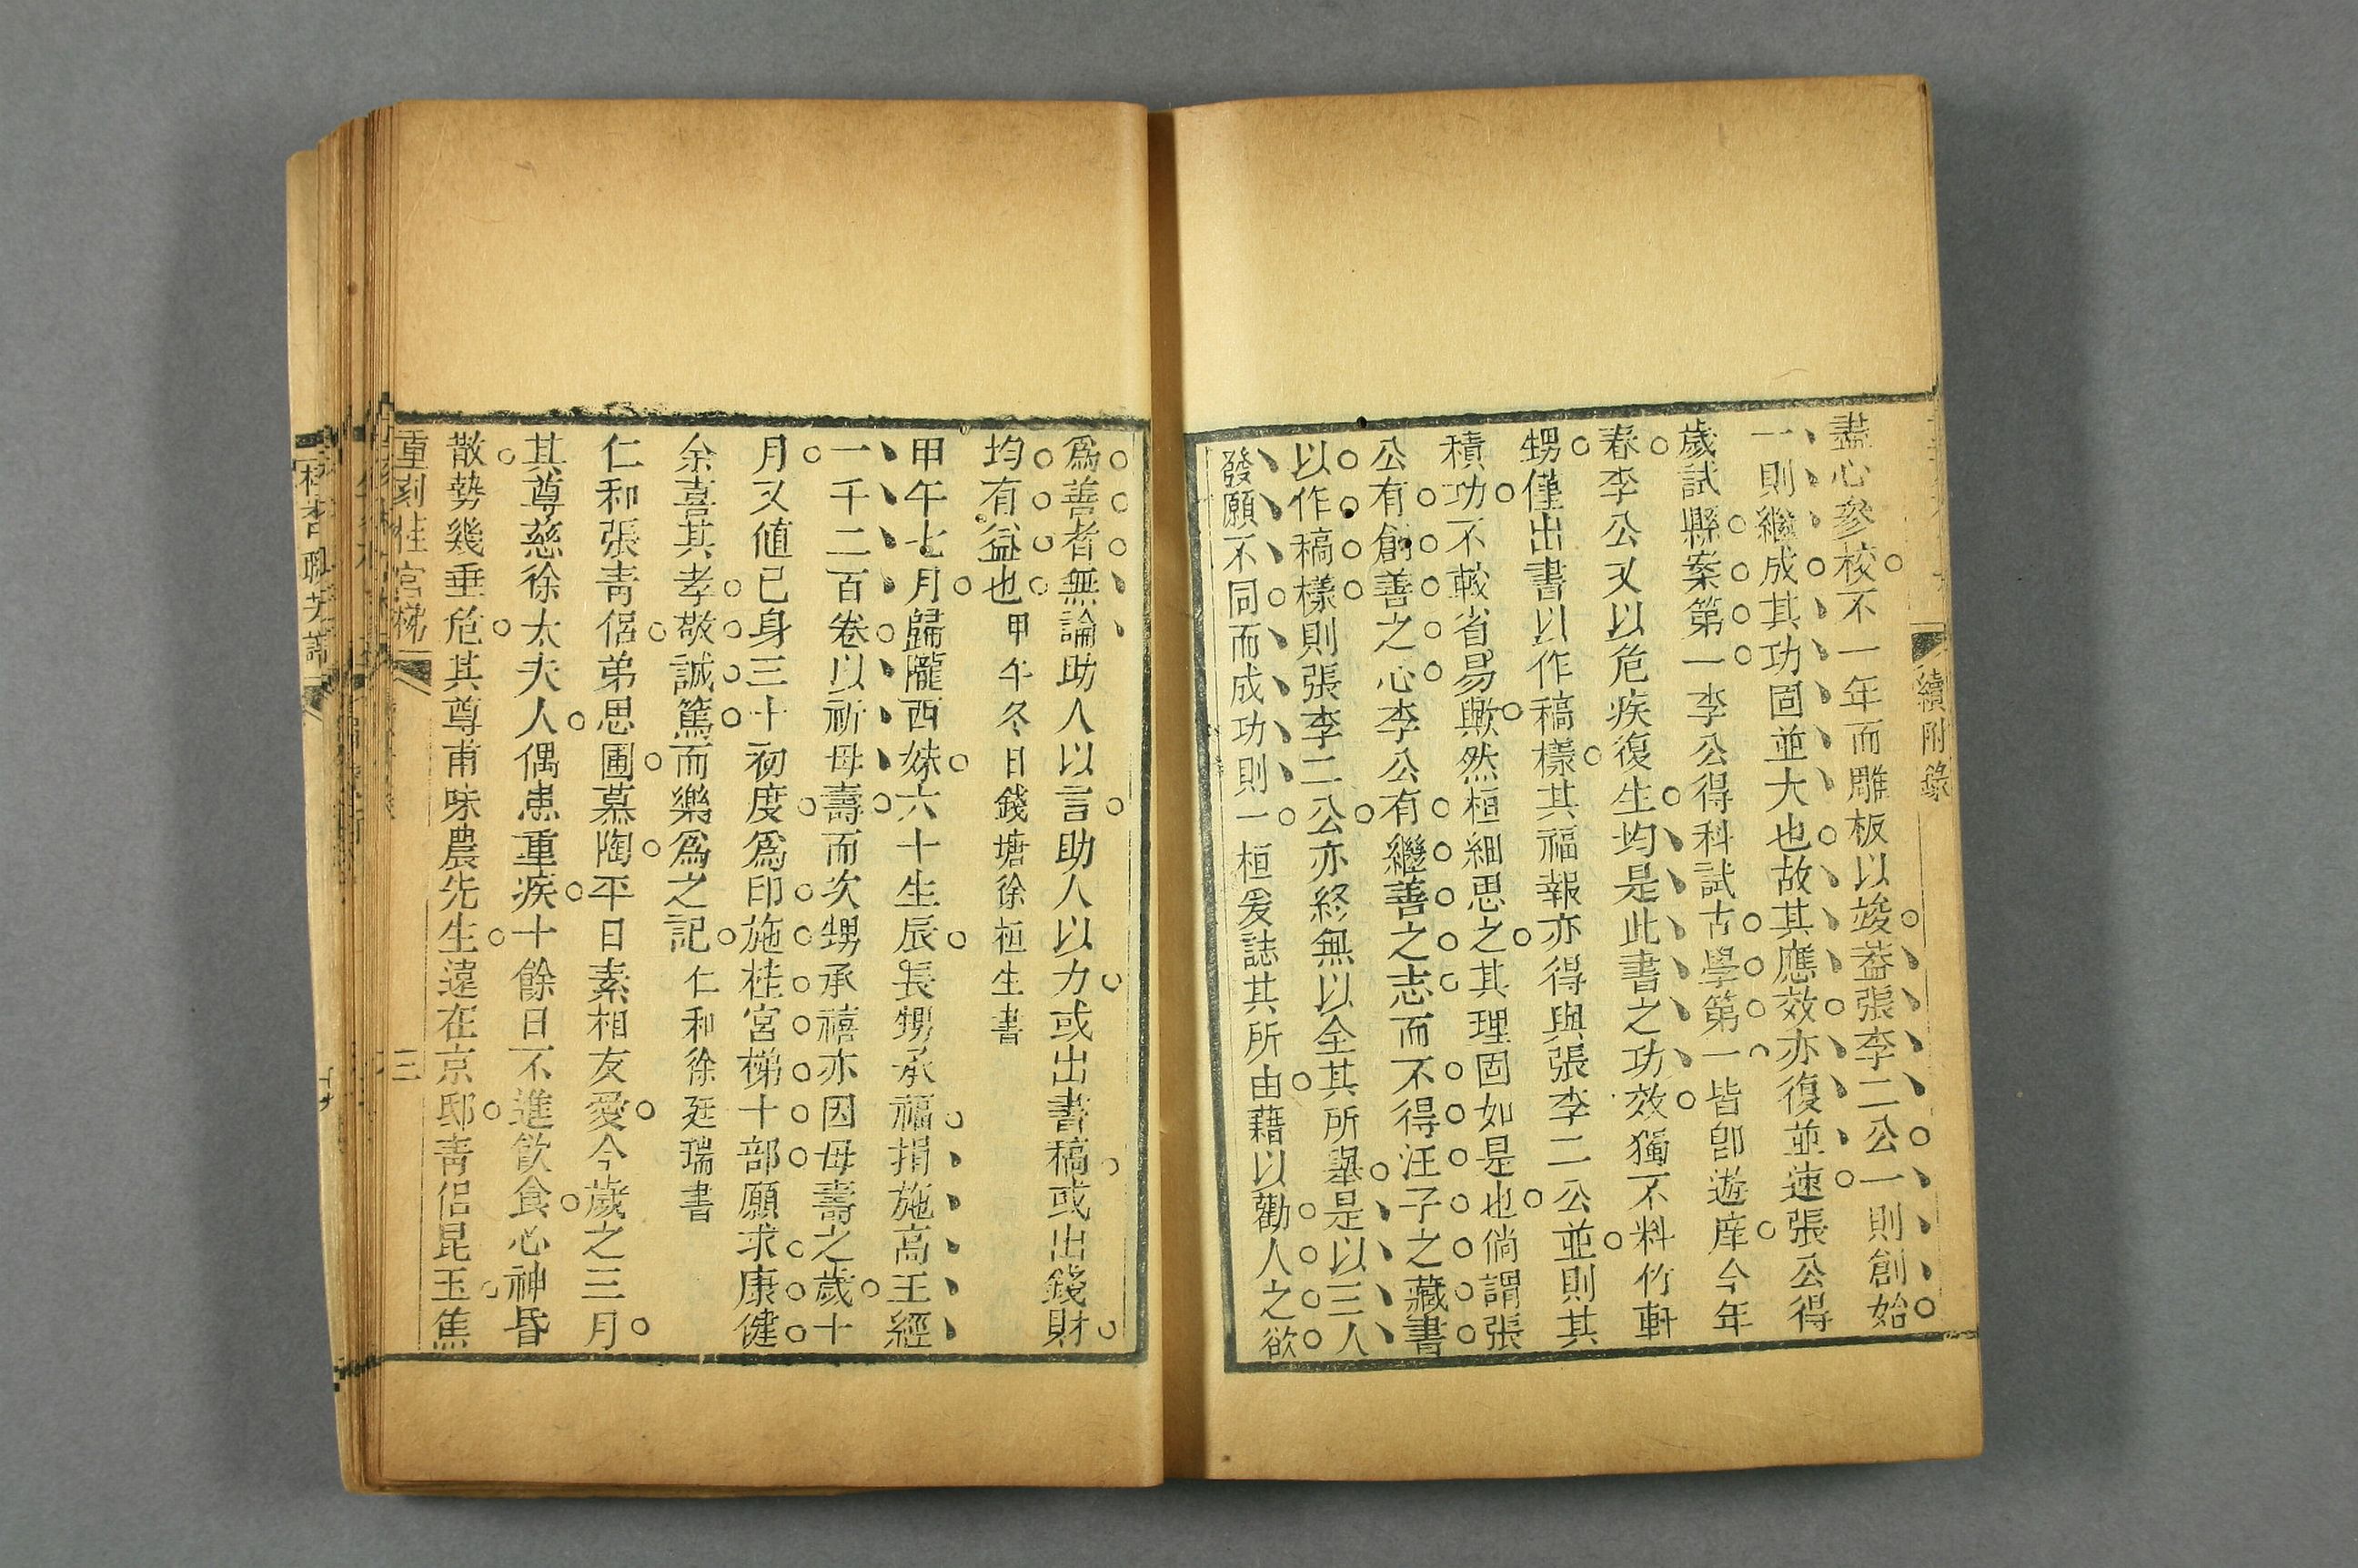 續附錄
盡心參校不一年而雕板以竣葢張李二公一則創始
一則繼成其功固並大也故其應效亦復並速張公得
歲試縣案第一李公得科試古學第一皆卽遊庠今年
春李公又以危疾復生均是此書之功效獨不料竹軒
甥僅出書以作稿樣其福報亦得與張李二公並則其
積功不較省易歟然桓細思之其理固如是也倘謂張
公有創善之心李公有繼善之志而不得汪子之藏書
以作稿樣則張李二公亦終無以全其所舉是以三人
發願不同而成功則一桓爰誌其所由藉以勸人之欲
爲善者無論助人以言助人以力或出書稿或出錢財
均有益也甲午冬日錢塘徐桓生書
甲午七月歸隴西妹六十生辰長甥承福捐施高王經
一千二百卷以祈母壽而次甥承禧亦因母壽之歲十
月又值己身三十初度爲印施桂宮梯十部願求康健
余喜其孝敬誠篤而樂爲之記仁和徐廷瑞書
仁和張靑侶弟思圃慕陶平日素相友愛今歲之三月
其尊慈徐太夫人偶患重疾十餘日不進飮食心神昏
散勢幾垂危其尊甫味農先生遠在京邸靑侶昆玉焦
重刻桂宮梯
三